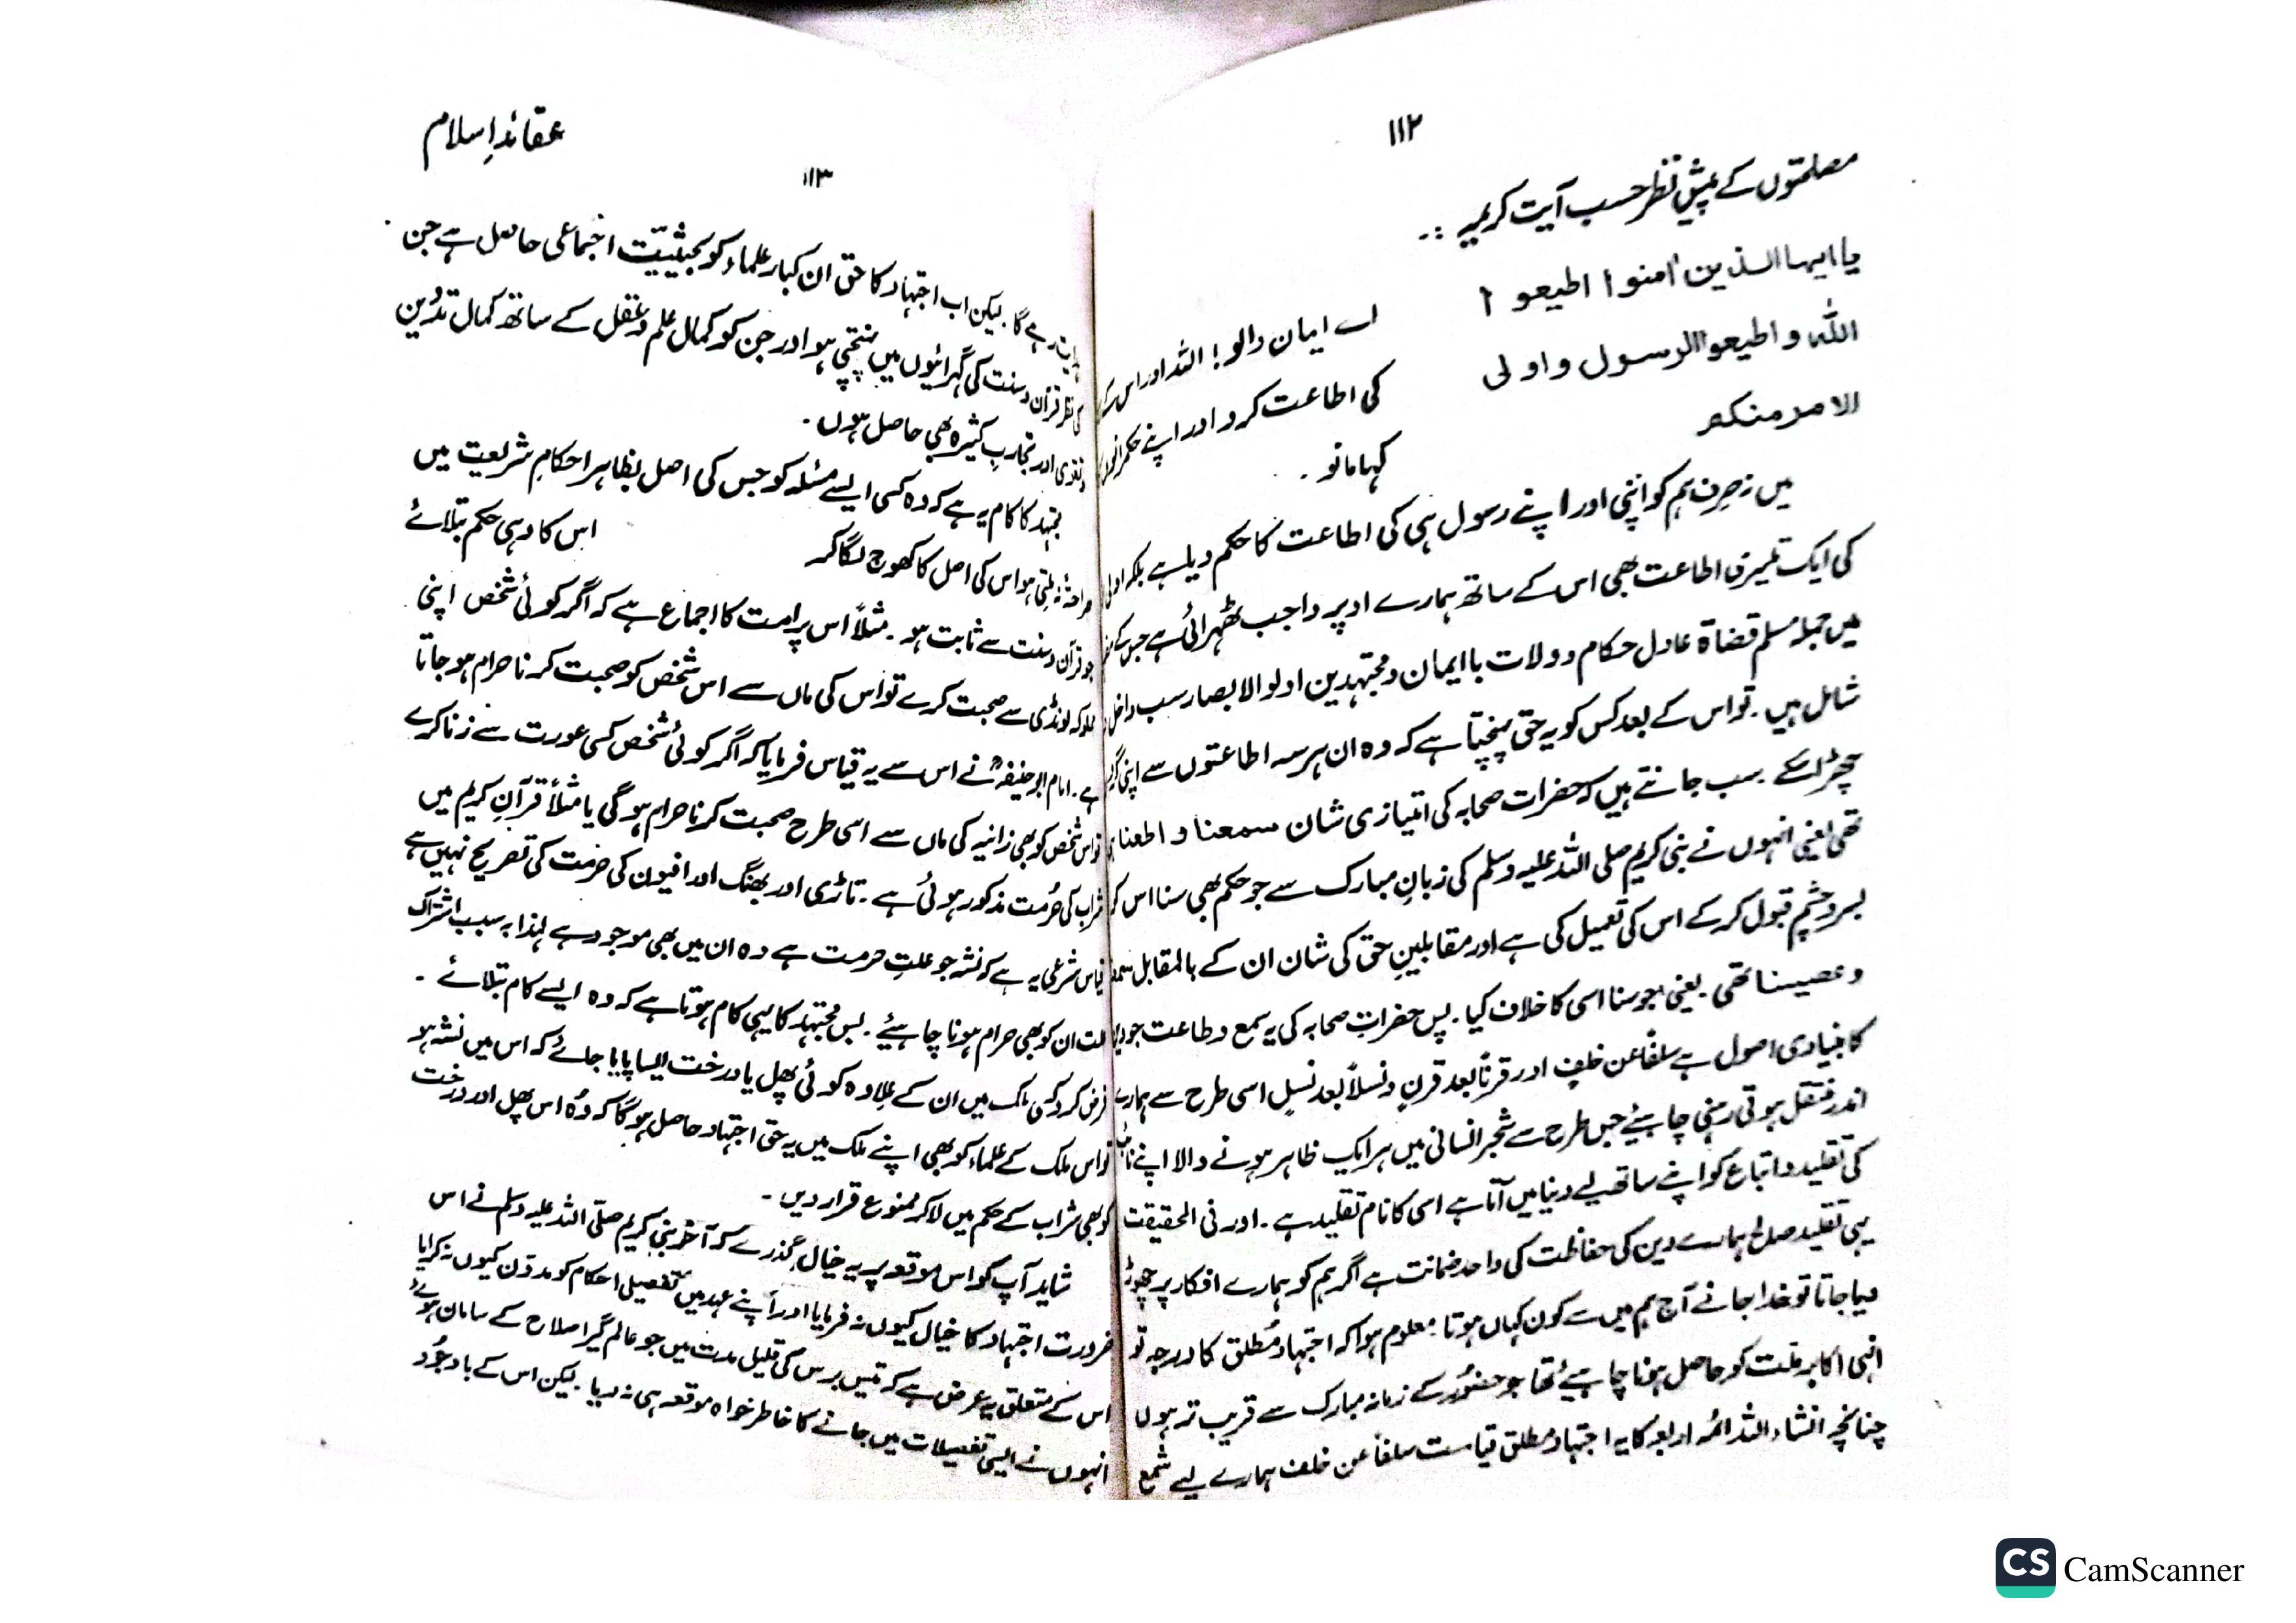 ۱۱۲
مصلحتوں کے پیش نظر حسب آیت کریمہ :۔
یا ایہا الذین اٰمنوا اطیعوا
اللہ و اطیعوا الرسول و اولی
الامر منکم
اے ایمان والو! اللہ اور اس کے
کی اطاعت کرو اور اپنے
کہا مانو ۔
میں نہ صرف ہم کو اپنی اور اپنے رسول ہی کی اطاعت کا حکم دیا ہے بلکہ
کی ایک تیسری اطاعت بھی اس کے ساتھ ہمارے اوپر واجب ٹھہرائی ہے جس کے
میں جملہ مسلم قضاۃ عادل حکام و ولات با ایمان و مجتہدین اولو الابصار سب داخل و
شامل ہیں۔ تو اس کے بعد کس کو یہ حق پہنچتا ہے کہ وہ ان ہر سہ اطاعتوں سے اپنی
چھڑا سکے۔ سب جانتے ہیں کہ حضرات صحابہ کی امتیازی شان سمعنا و اطعنا
تھی یعنی انہوں نے نبی کریم صلی اللہ علیہ وسلم کی زبانِ مبارک سے جو حکم بھی سنا اس کو
بسر و چشم قبول کر کے اس کی تعمیل کی ہے اور مقابلینِ حق کی شان ان کے بالمقابل
و عصینا تھی۔ یعنی جو سنا اسی کا خلاف کیا۔ پس حضراتِ صحابہ کی یہ سمع و طاعت جو
کا بنیادی اصول ہے سلفاً عن خلفٍ اور قرناً بعد قرنٍ و نسلاً بعد نسلٍ اسی طرح سے ہمارے
اندر منتقل ہوتی رہنی چاہیئے جس طرح سے شجرِ انسانی میں ہر ایک ظاہر ہونے والا اپنے
کی تقلید و اتباع کو اپنے ساتھ لیے دنیا میں آتا ہے اسی کا نام تقلید ہے۔ اور فی الحقیقت
یہی تقلید صالح ہمارے دین کی حفاظت کی واحد ضمانت ہے اگر ہم کو ہمارے افکار پر چھوڑ
دیا جاتا تو خدا جانے آج ہم میں سے کون کہاں ہوتا۔ معلوم ہوا کہ اجتہادِ مُطلق کا درجہ تو
انہی اکابر ملت کو حاصل ہونا چاہیئے تھا جو حضورؐ کے زمانہ مبارک سے قریب تر ہوں
چنانچہ انشاء اللہ ائمہ اربعہ کا یہ اجتہاد مطلق قیامت سلفاً عن خلف ہمارے لیے شمع
عقائدِ اسلام
۱۱۳
رہے گا۔ لیکن اب اجتہاد کا حق ان کبار علماء کو بحیثیت اجتماعی حاصل ہے جن
کی نظر قرآن و سنت کی گہرائیوں میں پہنچتی ہو اور جن کو کمال علم و عقل کے ساتھ کمال تدین
و تقویٰ اور تجاربِ کثیرہ بھی حاصل ہوں۔
مجتہد کا کام یہ ہے کہ وہ کسی ایسے مسئلہ کو جس کی اصل بظاہر احکامِ شریعت میں
صراحتہً نہ ملتی ہو اس کی اصل کا کھوج لگا کر اس کا وہی حکم بتلائے
جو قرآن و سنت سے ثابت ہو۔ مثلاً اس پر امت کا اجماع ہے کہ اگر کوئی شخص اپنی
مملوکہ لونڈی سے صحبت کرے تو اس کی ماں سے اس شخص کو صحبت کرنا حرام ہو جاتا
ہے۔ امام ابو حنیفہؒ نے اس سے یہ قیاس فرمایا کہ اگر کوئی شخص کسی عورت سے زنا کرے
تو اس شخص کو بھی زانیہ کی ماں سے اسی طرح صحبت کرنا حرام ہو گی یا مثلاً قرآنِ کریم میں
شراب کی حُرمت مذکور ہوئی ہے۔ تاڑی اور بھنگ اور افیون کی حرمت کی تصریح نہیں ہے
قیاس شرعی یہ ہے کہ نشہ جو علتِ حرمت ہے وہ ان میں بھی موجود ہے لہذا بہ سبب اشتراک
علت ان کو بھی حرام ہونا چاہیئے۔ بس مجتہد کا یہی کام ہوتا ہے کہ وہ ایسے کام بتلائے ۔
فرض کرو کسی ملک میں ان کے علاوہ کوئی پھل یا درخت ایسا پایا جائے کہ اس میں نشہ ہو
تو اس ملک کے علماء کو بھی اپنے ملک میں یہ حق اجتہاد حاصل ہو گا کہ وہ اس پھل اور درخت
کو بھی شراب کے حکم میں لا کر ممنوع قرار دیں ۔
شاید آپ کو اس موقعہ پر یہ خیال گذرے کہ آخر نبی کریم صلّی اللہ علیہ وسلم نے اس
ضرورت اجتہاد کا خیال کیوں نہ فرمایا اور اپنے عہد میں تفصیلی احکام کو مدوّن کیوں نہ کرایا
اس کے متعلق یہ عرض ہے کہ تئیس برس کی قلیل مدت میں جو عالمگیر اصلاح کے سامان ہوئے
انہوں نے ایسی تفصیلات میں جانے کا خاطر خواہ موقعہ ہی نہ دیا۔ لیکن اس کے باوجُود
CS CamScanner